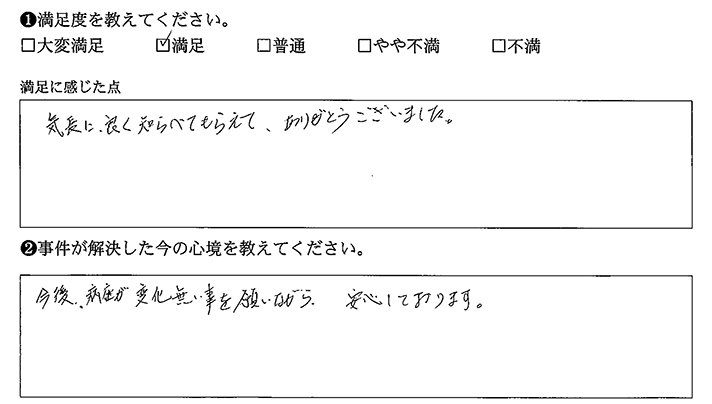 ❶満足度を教えてください。
□大変満足 ☑満足 □普通 □やや不満 □不満
満足に感じた点
気長に、良く知らべてもらえて、ありがとうございました。
❷事件が解決した今の心境を教えてください。
今後、病症が変化無い事を願いながら、安心しております。